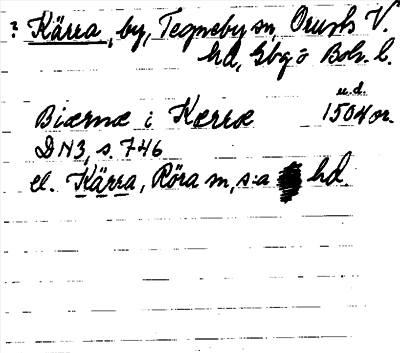 ? Kärra, by, Tegneby sn, Orusts V.
hd, Gbg o Boh. l.
u.d.
Biærnæ i Kærræ 1504 or.
DN3, s. 746
el. Kärra, Röra sn, s:a hd.